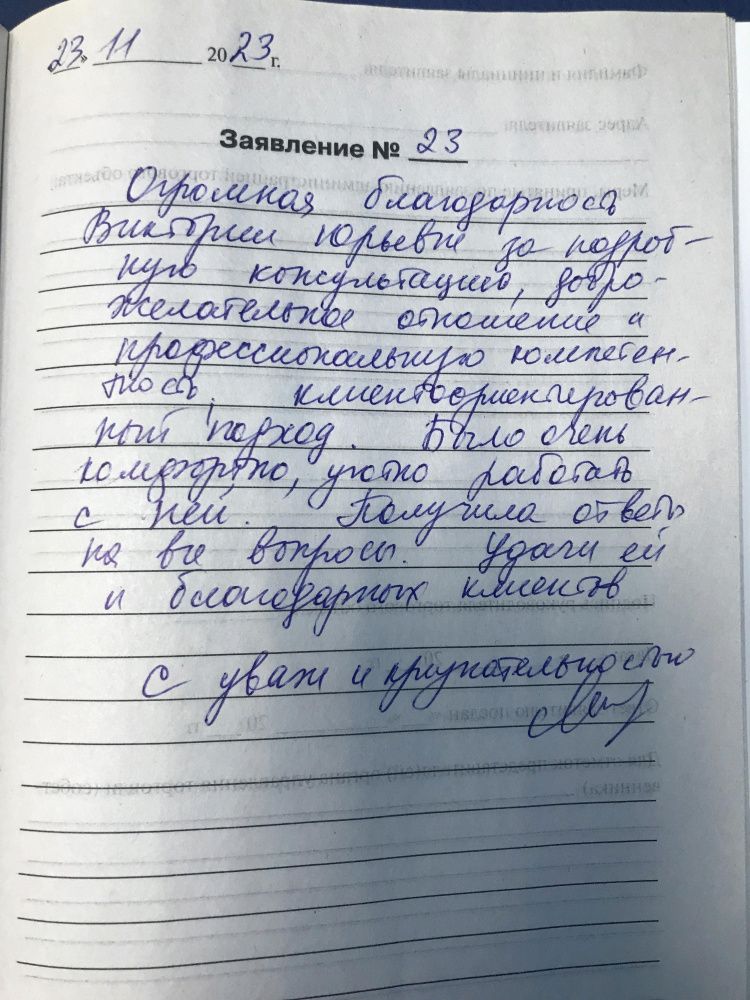 23. 11 2023 г.
Заявление № 23
Огромная благодарность
Виктории Юрьевне за подроб-
ную консультацию, добро-
желательное отношение и
профессиональную компетен-
тность, клиентоориентирован-
ный подход. Было очень
комфортно, уютно работать
с ней. Получила ответы
на все вопросы. Удачи ей
и благодарных клиентов
С уваж и